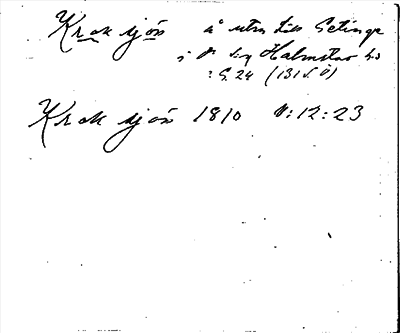 Kraksjön å utm till Getinge
i d:o s:n Halmstad hd
: S. 24 (131 f. Ö)
Kraksjön 1810 V:12:23